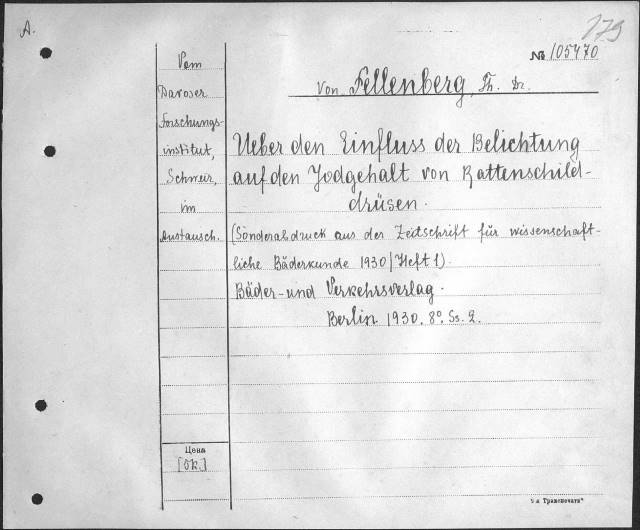 A.
179
№ 105470
Von Fellenberg, Th. Dr.
Vom
Davoser
Forschungs-
institut,
Schweiz,
im
Austausch.
Ueber den Einfluss der Belichtung
auf den Jodgehalt von Rattenschild-
drüsen.
(Sonderabdruck aus der Zeitschrift für wissenschaft-
liche Bäderkunde 1930/Heft 1).
Bäder- und Verkehrsverlag.
Berlin 1930. 8°. Ss. 2.
Цена
[ök.]
9-я Транспечати"